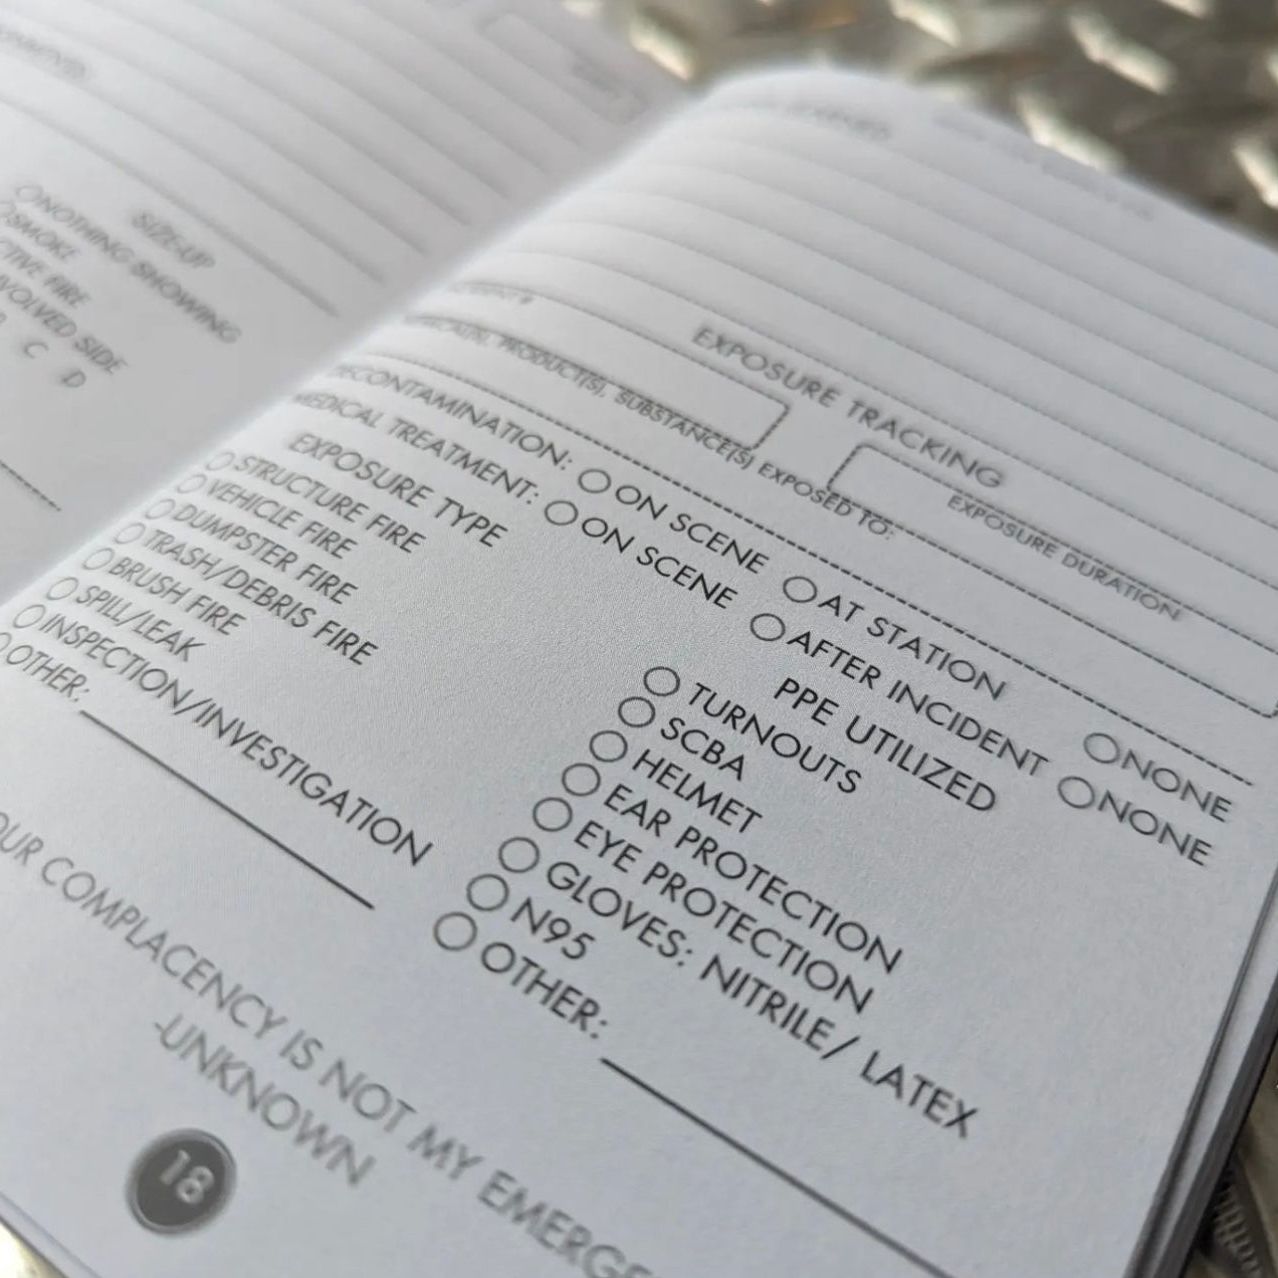 SIZE-UP
NOTHING SHOWING
SMOKE
CTIVE FIRE
VOLVED SIDE
B C D
EXPOSURE TRACKING
EXPOSURE DURATION
PRODUCT(S), SUBSTANCE(S) EXPOSED TO:
DECONTAMINATION: ON SCENE AT STATION NONE
MEDICAL TREATMENT: ON SCENE AFTER INCIDENT NONE
EXPOSURE TYPE
STRUCTURE FIRE
VEHICLE FIRE
DUMPSTER FIRE
TRASH/DEBRIS FIRE
BRUSH FIRE
SPILL/LEAK
INSPECTION/INVESTIGATION
OTHER:
PPE UTILIZED
TURNOUTS
SCBA
HELMET
EAR PROTECTION
EYE PROTECTION
GLOVES: NITRILE/ LATEX
N95
OTHER:
OUR COMPLACENCY IS NOT MY EMERGE
-UNKNOWN
18